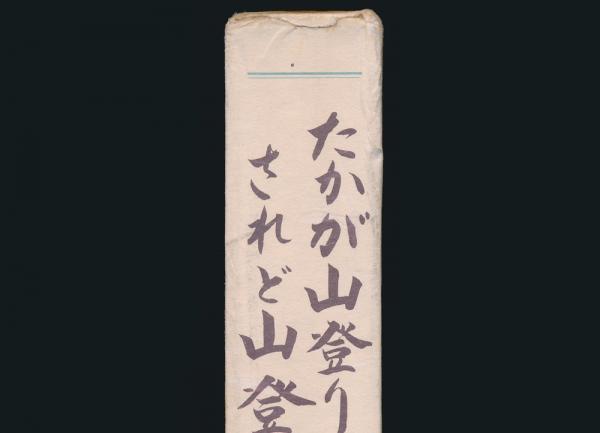 たかが山登り
されど山登